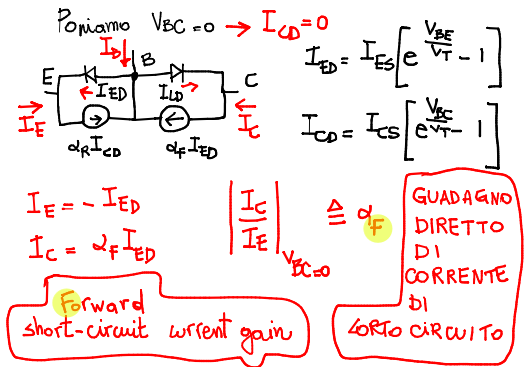 Poniamo V_BC = 0 → I_CD = 0
I_D
B
E
C
I_ED
I_CD
I_E
I_C
α_R I_CD
α_F I_ED
I_ED = I_ES [e^(V_BE/V_T) - 1]
I_CD = I_CS [e^(V_BC/V_T) - 1]
I_E = - I_ED
I_C = α_F I_ED
|I_C/I_E|_(V_BC=0) ≜ α_F
GUADAGNO
DIRETTO
DI
CORRENTE
DI
CORTO CIRCUITO
Forward
short-circuit current gain